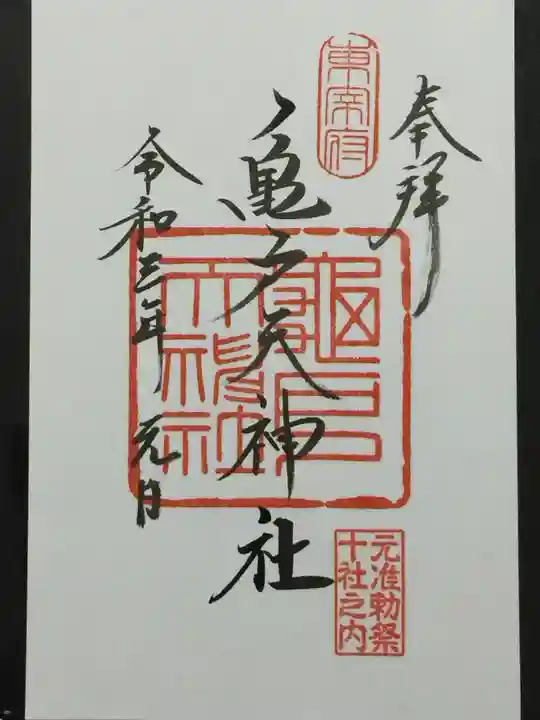 奉拝
東宰府
亀戸天神社
亀戸天神社
令和三年 元日
元准勅祭
十社之内